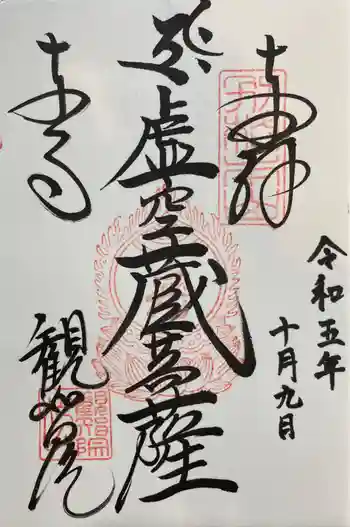 奉拝
令和五年
十月九日
虚空蔵菩薩
東寺
観智院